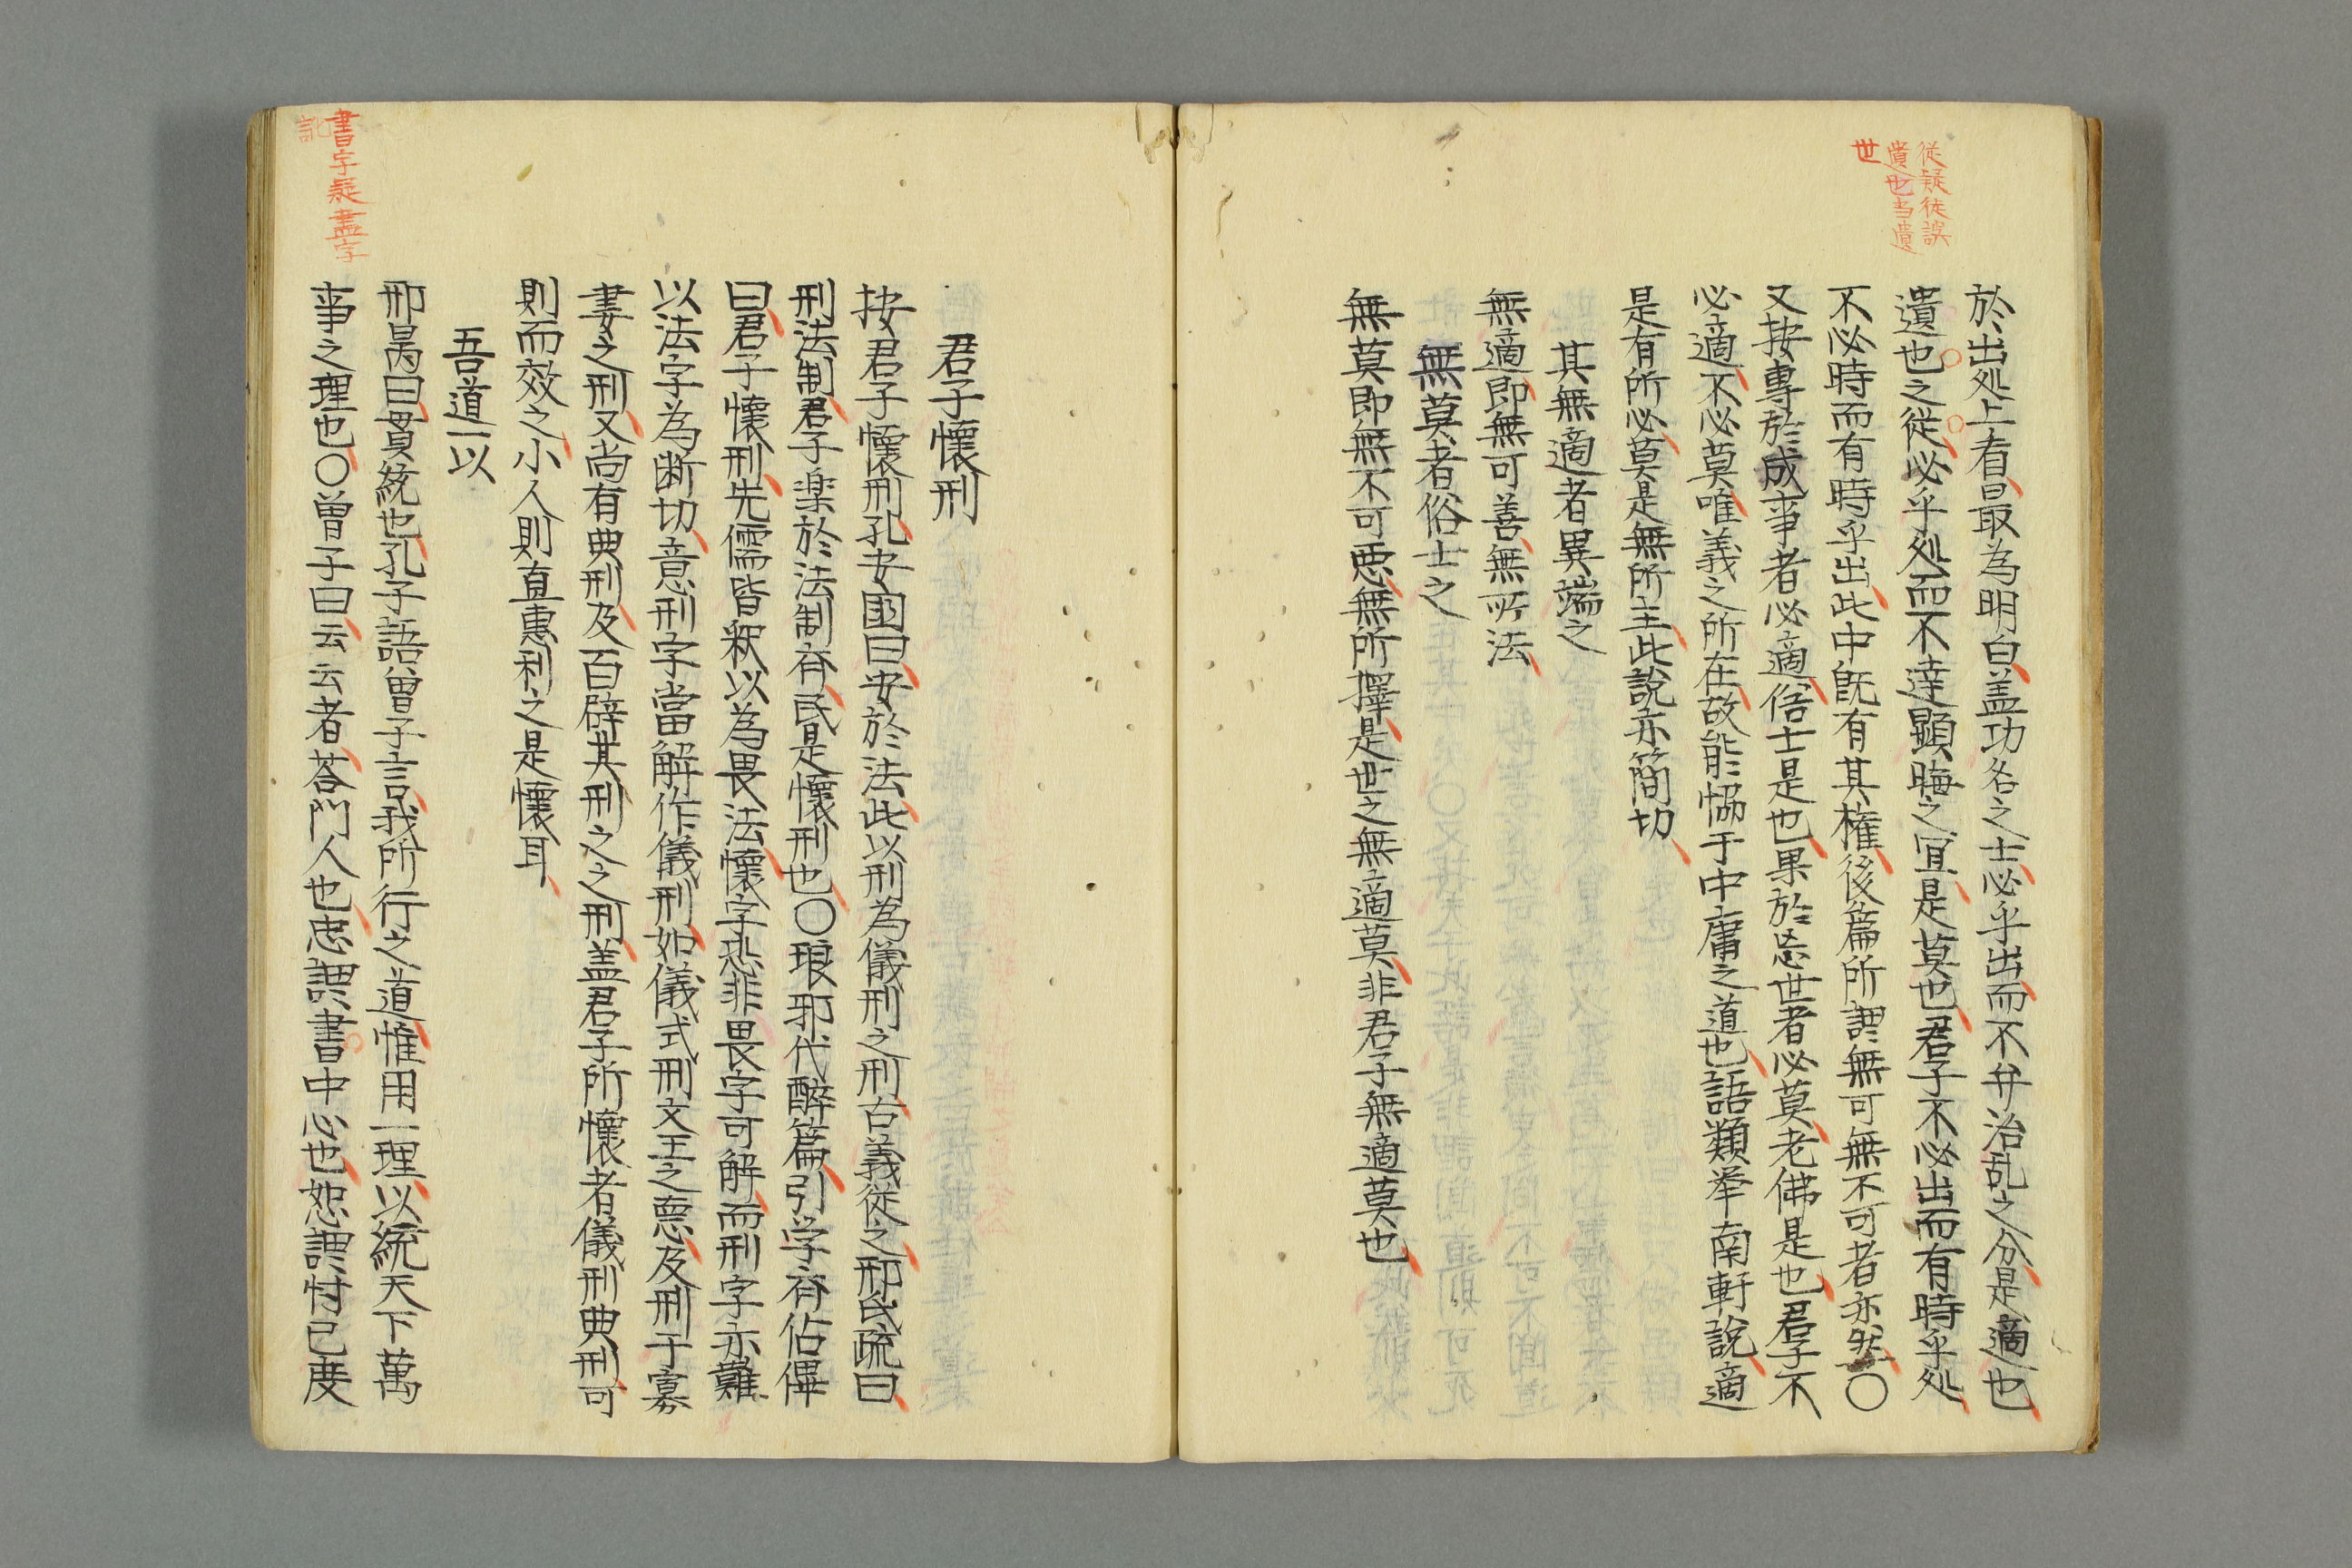 従疑徒誤
遺也当遺
世
於出処上看最為明白盖功名之士必乎出而不弁治乱之分是適也
遺也之従必乎処而不達顕晦之宜是莫也君子不必出而有時乎処
不必時而有時乎出此中既有其権後篇所謂無可無不可者亦然〇
又按專於成事者必適俗士是也果於忘世者必莫老佛是也君子不
必適不必莫唯義之所在故能恊于中庸之道也語類挙南軒説適
是有所必莫是無所主此説亦簡切
其無適者異端之
無適即無可善無所法
無莫者俗士之
無莫即無不可悪無所擇是世之無適莫非君子無適莫也
君子懷刑
按君子懷刑孔安国曰安於法此以刑為儀刑之刑古義従之邢氏疏曰
刑法制君子楽於法制斉民是懷刑也〇琅邪代醉篇引学斉佔俾
曰君子懷刑先儒皆釈以為畏法懷字恐非畏字可解而刑字亦難
以法字為断切意刑字當解作儀刑如儀式刑文王之悳及刑于寡
妻之刑又尚有典刑及百辟其刑之之刑盖君子所懷者儀刑典刑可
則而效之小人則直惠利之是懷耳
吾道一以
邢昺曰貫統也孔子語曽子言我所行之道惟用一理以統天下萬
事之理也〇曽子曰云云者荅門人也忠謂書中心也恕謂忖己度
書字疑盡字
訛